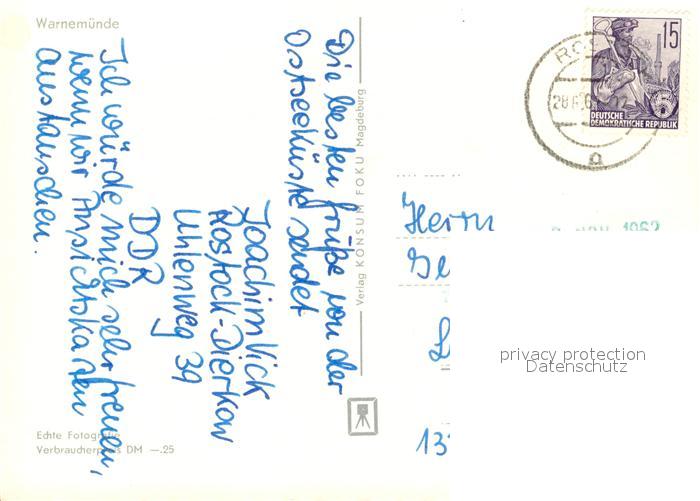 Warnemünde
Die besten Grüße von der
Ostseeküste sendet
Joachim Vick
Rostock-Dierkow
Uhlenweg 39
DDR
Ich würde mich sehr freuen,
wenn wir Ansichtskarten
austauschen.
Echte Fotografie
Verbraucherpreis DM —.25
Verlag KONSUM FOKU Magdeburg
15
DEUTSCHE
DEMOKRATISCHE REPUBLIK
ROS
28
a
Herrn
1962
Ge
13
privacy protection
Datenschutz